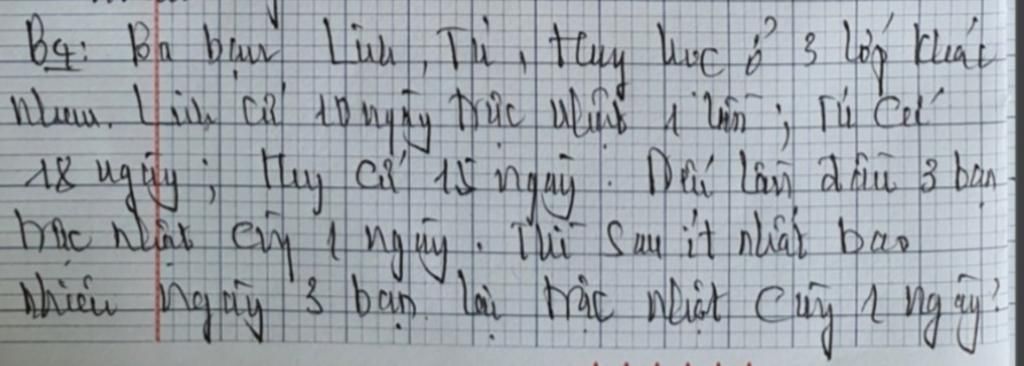 B4: Ba bạn Linh, Tú, Huy học ở 3 lớp khác
nhau. Linh cứ 10 ngày trực nhật 1 lần; Tú cứ
18 ngày; Huy cứ 15 ngày. lần đầu 3 bạn
trực nhật cùng 1 ngày. Thì sau ít nhất bao
nhiêu ngày 3 bạn lại trực nhật cùng 1 ngày?